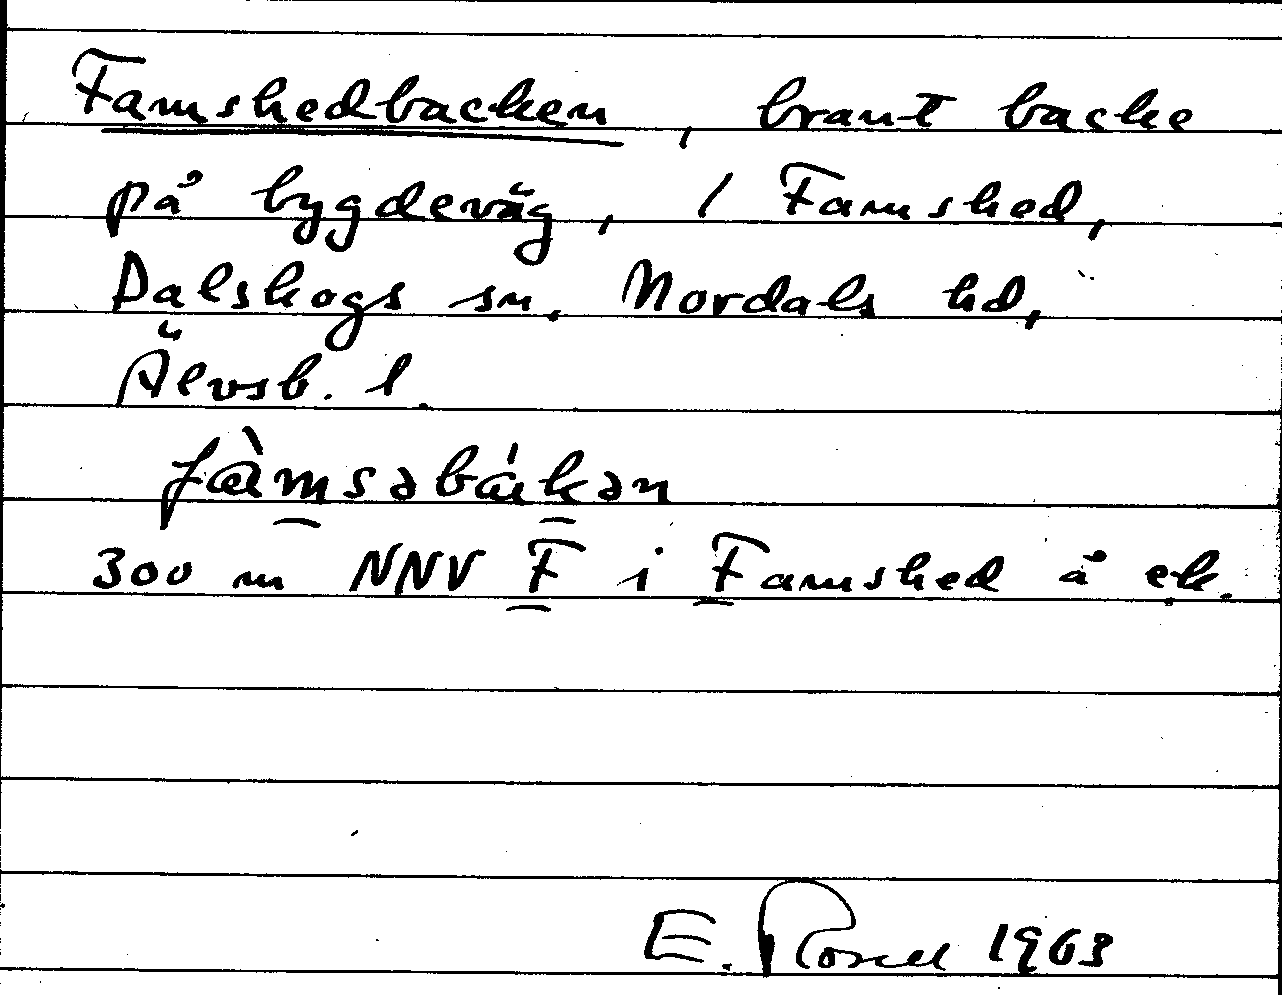 Famshedbacken, brant backe
på bygdeväg, / Famshed,
Dalskogs sn, Nordals hd,
Älvsb. l.
fàmsəbákən
300 m NNV F i Famshed å ek.
E. Rosell 1963